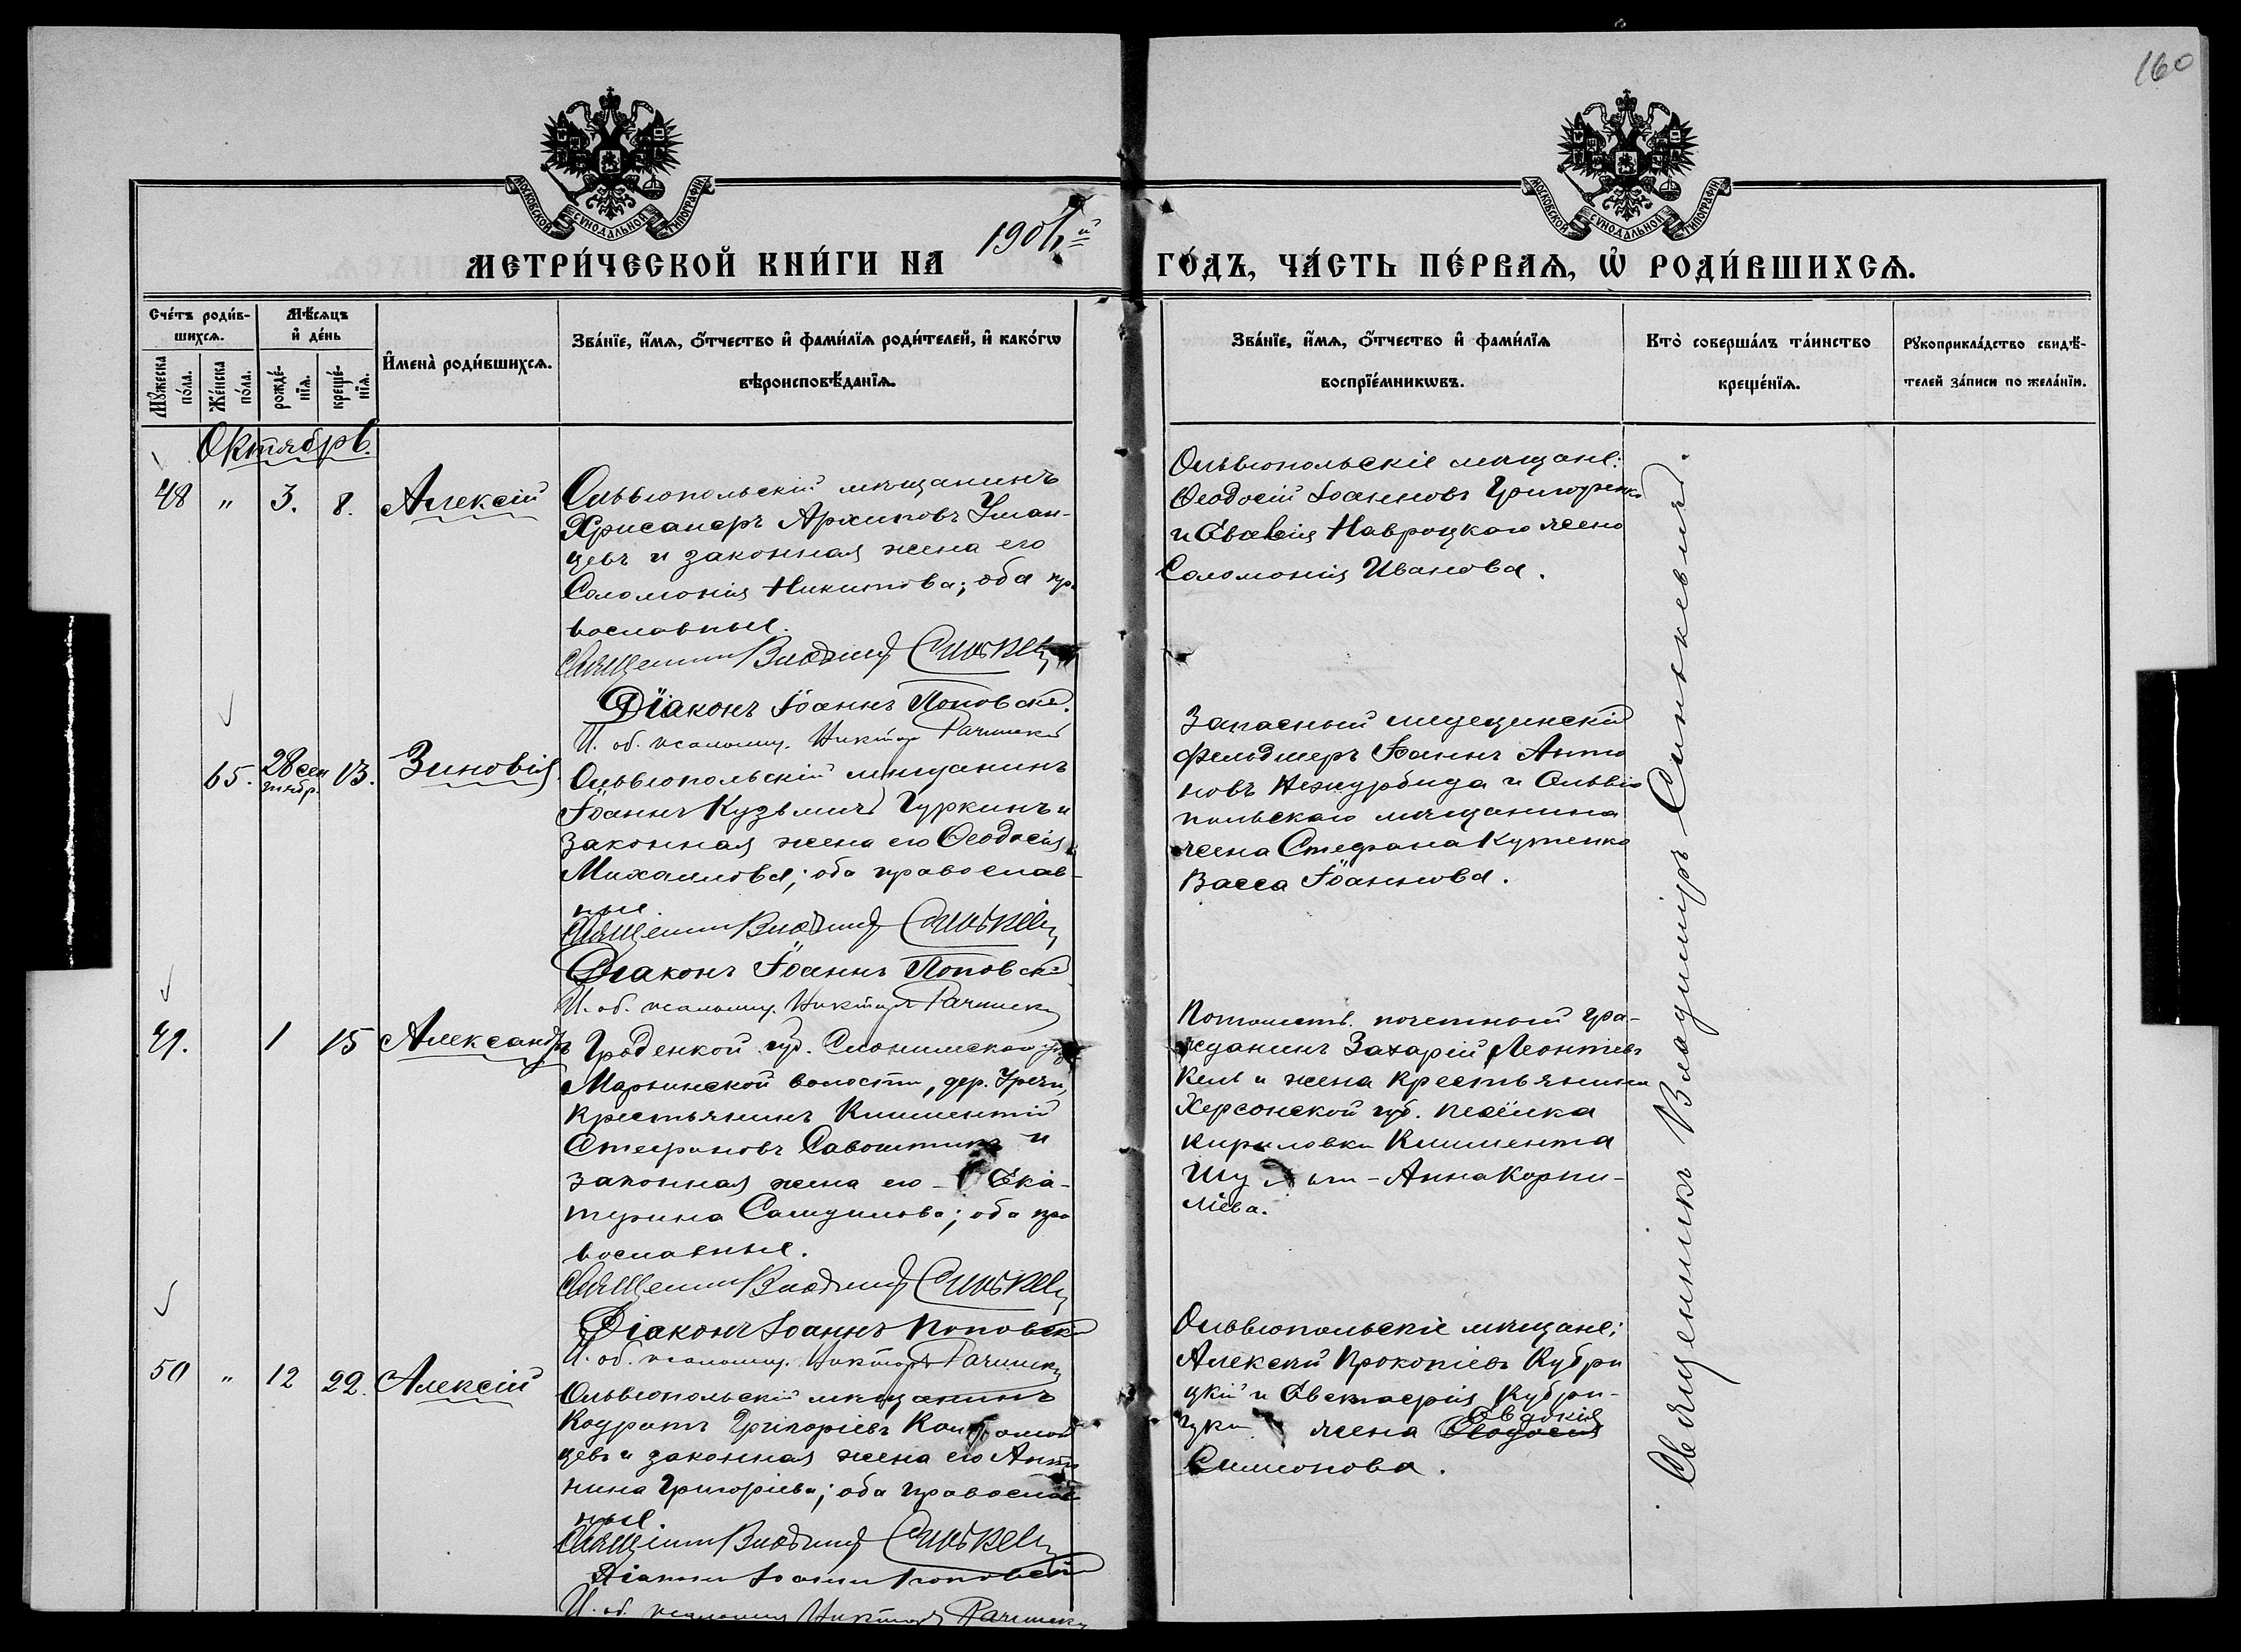 160
МОСКОВСКОЙ СѴНОДАЛЬНОЙ ТИПОГРАФІИ
МОСКОВСКОЙ СѴНОДАЛЬНОЙ ТИПОГРАФІИ
МЕТРИ́ЧЕСКОЙ КНИ́ГИ НА
ГО́ДЪ, ЧА́СТЬ ПЕ́РВАѦ, Ѡ҆ РОДИ́ВШИХСѦ.
Сче́тъ роди́в-
шихсѧ.
Мꙋ́жеска по́ла.
Же́нска по́ла.
Мѣ́сѧцъ
и҆ де́нь
рожде́-
нїѧ.
креще́-
нїѧ.
И҆мена̀ роди́вшихсѧ.
Зва́нїе, и҆́мѧ, ѻ҆́тчество и҆ фами́лїѧ роди́телей, и҆ како́гѡ
вѣроисповѣ́данїѧ.
Зва́нїе, и҆́мѧ, ѻ҆́тчество и҆ фами́лїѧ
воспрїе́мникѡвъ.
Кто̀ соверша́лъ та́инство
креще́нїѧ.
Рꙋкоприкла́дство свидѣ́-
телей за́писи по жела́нїи.
Октябрь.
48 " 3. 8. Алексій
Ольвіопольскій мѣщанинъ
Хрисанѳъ Архиповъ Уман-
цевъ и законная жена его
Соломонія Никитова; оба пр.
вославные.
Священникъ Владиміръ Синькевичъ
Діаконъ Іоаннъ Поповскій.
И. об. псаломщ. Викторъ Рачинскій
Ольвіопольскіе мѣщане:
Ѳеодосій Іоанновъ Григоренко
и Навроцкаго жена
Соломонія Иванова.
65. 28 сен
тябр. 13. Зиновія
Ольвіопольскій мѣщанинъ
Іоаннъ Кузьмичъ Гуркинъ и
законная жена его Ѳеодосія
Михаилова; оба православ-
ные.
Священникъ Владиміръ Синькевичъ
Діаконъ Іоаннъ Поповскій
И. об. псаломщ. Викторъ Рачинскій
Запасный медецинскій
фельдшеръ Іоаннъ Анто
новъ Нежурбида и Ольвіо
польскаго мѣщанина
жена Стефана Кутенко
Васса Іоаннова.
49. 1 15 Александръ
Гроденкой губ. Слонимскаго у.
Марьинской волости, дер. Гречи,
крестьянинъ Климентій
Стефановъ Савоштикъ и
законная жена его - Ека-
терина Самуилова; оба пра
вославные.
Священникъ Владиміръ Синькевичъ
Діаконъ Іоаннъ Поповскій
И. об. псаломщ. Викторъ Рачинскій
Потомств. почетный гра-
жданинъ Захарій Леонтіевъ
и жена крестьянина
Херсонской губ. посёлка
Кириловки Климента
- Анна Корни-
ліева.
50 " 12 22. Алексій
Ольвіопольскій мѣщанинъ
Кодратъ Григоріевъ
цевъ и законная жена его Анто
нина Григоріева; оба православ
ные
Священникъ Владиміръ Синькевичъ
Діаконъ Іоаннъ Поповскій
И. об. псаломщ. Викторъ Рачинскій
Ольвіопольскіе мѣщане:
Алексѣй Прокопіевъ Кубри
цкій и Кубри-
цка жена Ѳеодосія Евдокія
Симонова.
Священникъ Владиміръ Синькевичъ.